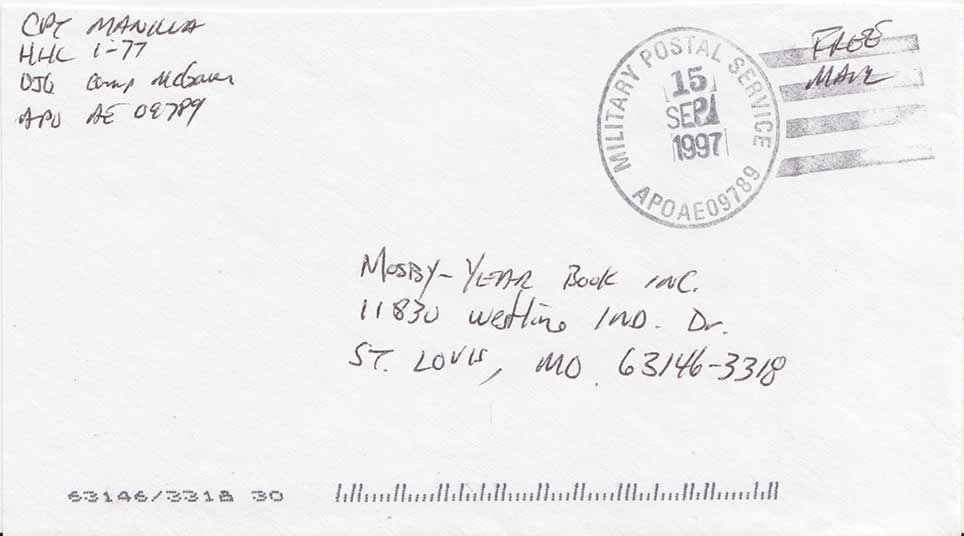 CPT MANILLA
HHC 1-77
OJG Camp McGovern
APO AE 09789
MILITARY POSTAL SERVICE
15
SEP
1997
APOAE09789
FREE
MAIL
MOSBY-YEAR BOOK INC.
11830 Westline IND. Dr.
ST. LOUIS, MO. 63146-3318
63146/3318 30